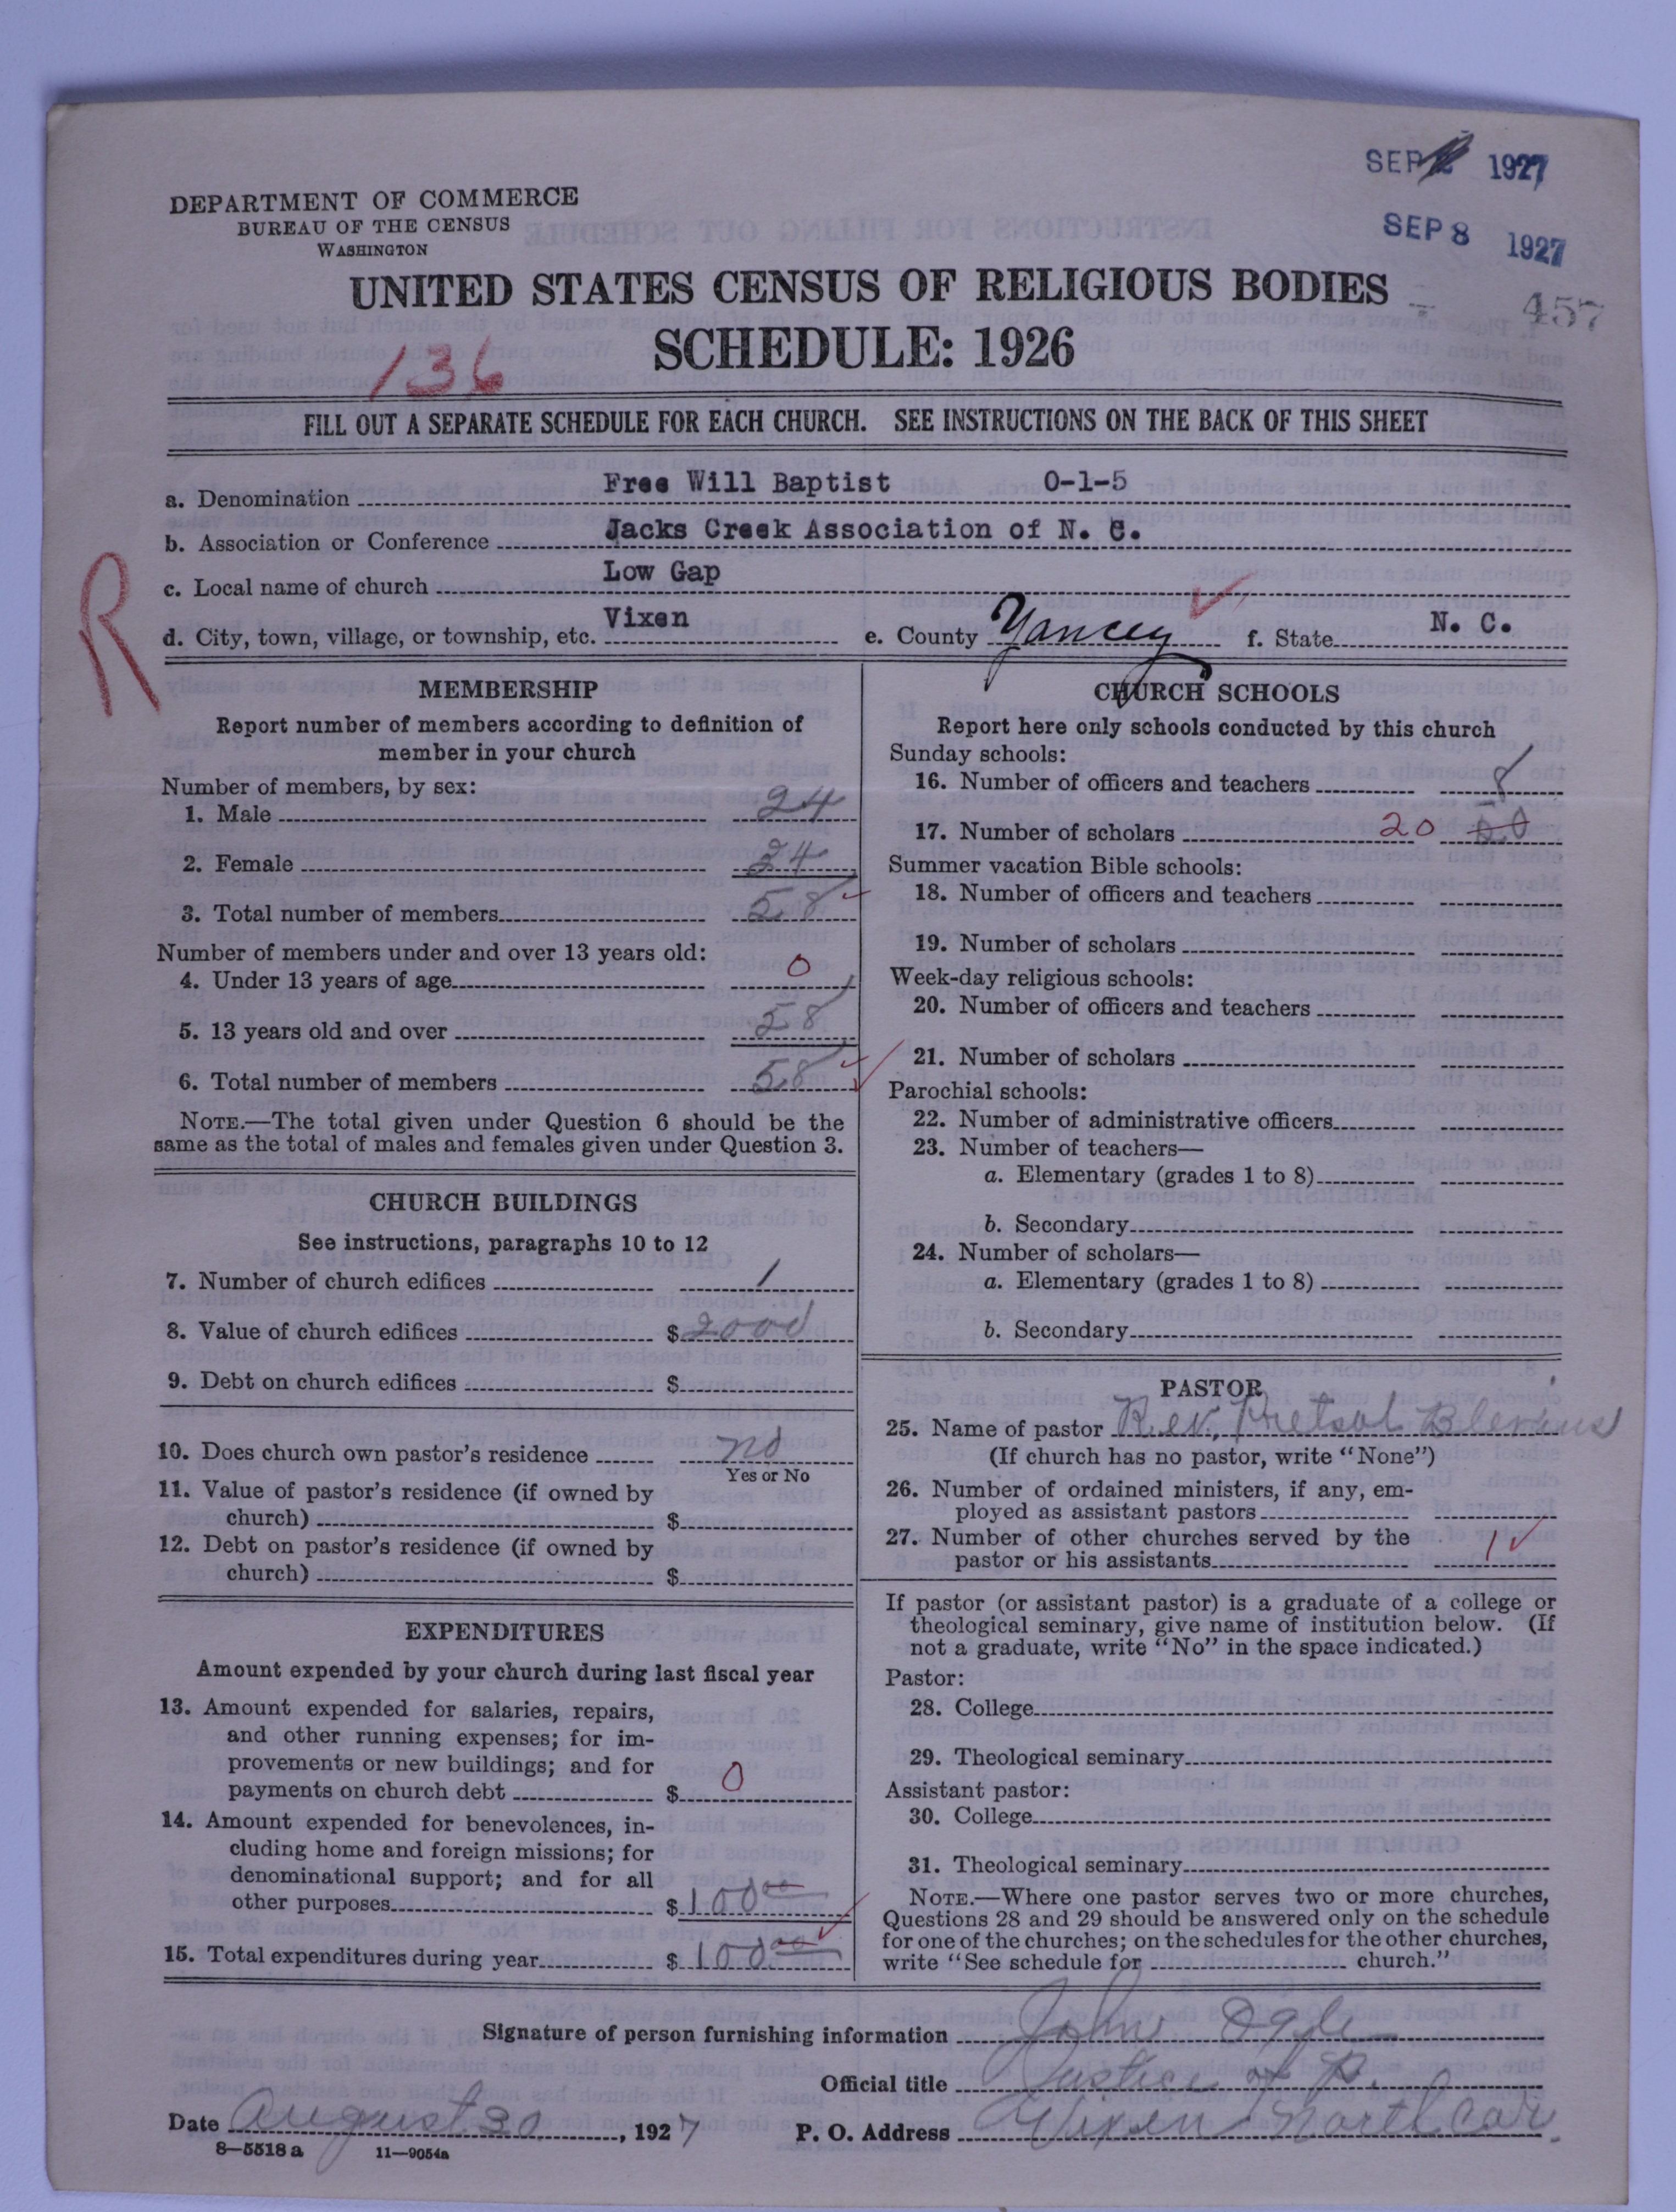 SEP 1927
SEP 8 1927
DEPARTMENT OF COMMERCE
BUREAU OF THE CENSUS
WASHINGTON
UNITED STATES CENSUS OF RELIGIOUS BODIES
457
SCHEDULE: 1926
136
FILL OUT A SEPARATE SCHEDULE FOR EACH CHURCH. SEE INSTRUCTIONS ON THE BACK OF THIS SHEET
a. Denomination Free Will Baptist 0-1-5
b. Association or Conference Jacks Creek Association of N. C.
c. Local name of church Low Gap
R
d. City, town, village, or township, etc. Vixen e. County Yancey f. State N. C.
MEMBERSHIP
Report number of members according to definition of
member in your church
Number of members, by sex:
1. Male 24
2. Female 34
3. Total number of members 58
Number of members under and over 13 years old:
4. Under 13 years of age 0
5. 13 years old and over 58
6. Total number of members 58
NOTE.—The total given under Question 6 should be the
same as the total of males and females given under Question 3.
CHURCH BUILDINGS
See instructions, paragraphs 10 to 12
7. Number of church edifices 1
8. Value of church edifices $ 2000
9. Debt on church edifices $
10. Does church own pastor's residence no
Yes or No
11. Value of pastor's residence (if owned by
church) $
12. Debt on pastor's residence (if owned by
church) $
EXPENDITURES
Amount expended by your church during last fiscal year
13. Amount expended for salaries, repairs,
and other running expenses; for im-
provements or new buildings; and for
payments on church debt $ 0
14. Amount expended for benevolences, in-
cluding home and foreign missions; for
denominational support; and for all
other purposes $ 100 00
15. Total expenditures during year $ 100 00
CHURCH SCHOOLS
Report here only schools conducted by this church
Sunday schools:
16. Number of officers and teachers 8
17. Number of scholars 20
Summer vacation Bible schools:
18. Number of officers and teachers
19. Number of scholars
Week-day religious schools:
20. Number of officers and teachers
21. Number of scholars
Parochial schools:
22. Number of administrative officers
23. Number of teachers—
a. Elementary (grades 1 to 8)
b. Secondary
24. Number of scholars—
a. Elementary (grades 1 to 8)
b. Secondary
PASTOR
25. Name of pastor Rev. Blevins
(If church has no pastor, write "None")
26. Number of ordained ministers, if any, em-
ployed as assistant pastors
27. Number of other churches served by the
pastor or his assistants 1
If pastor (or assistant pastor) is a graduate of a college or
theological seminary, give name of institution below. (If
not a graduate, write "No" in the space indicated.)
Pastor:
28. College
29. Theological seminary
Assistant pastor:
30. College
31. Theological seminary
NOTE.—Where one pastor serves two or more churches,
Questions 28 and 29 should be answered only on the schedule
for one of the churches; on the schedules for the other churches,
write "See schedule for church."
Signature of person furnishing information John Ogle
Official title Justice of P.
Date August 30, 1927 P. O. Address Vixen North Car.
8—5518 a 11—9054a